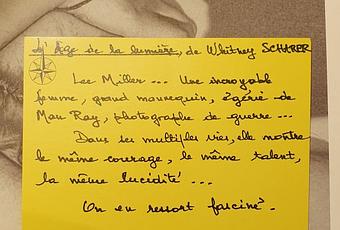 L'Âge de la lumière, de Whitney SCHARER
Lee Miller ... Une incroyable
femme, grand mannequin, égérie de
Man Ray, photographe de guerre ...
Dans ses multiples vies, elle montre
le même courage, le même talent,
la même lucidité ...
On en ressort fasciné.